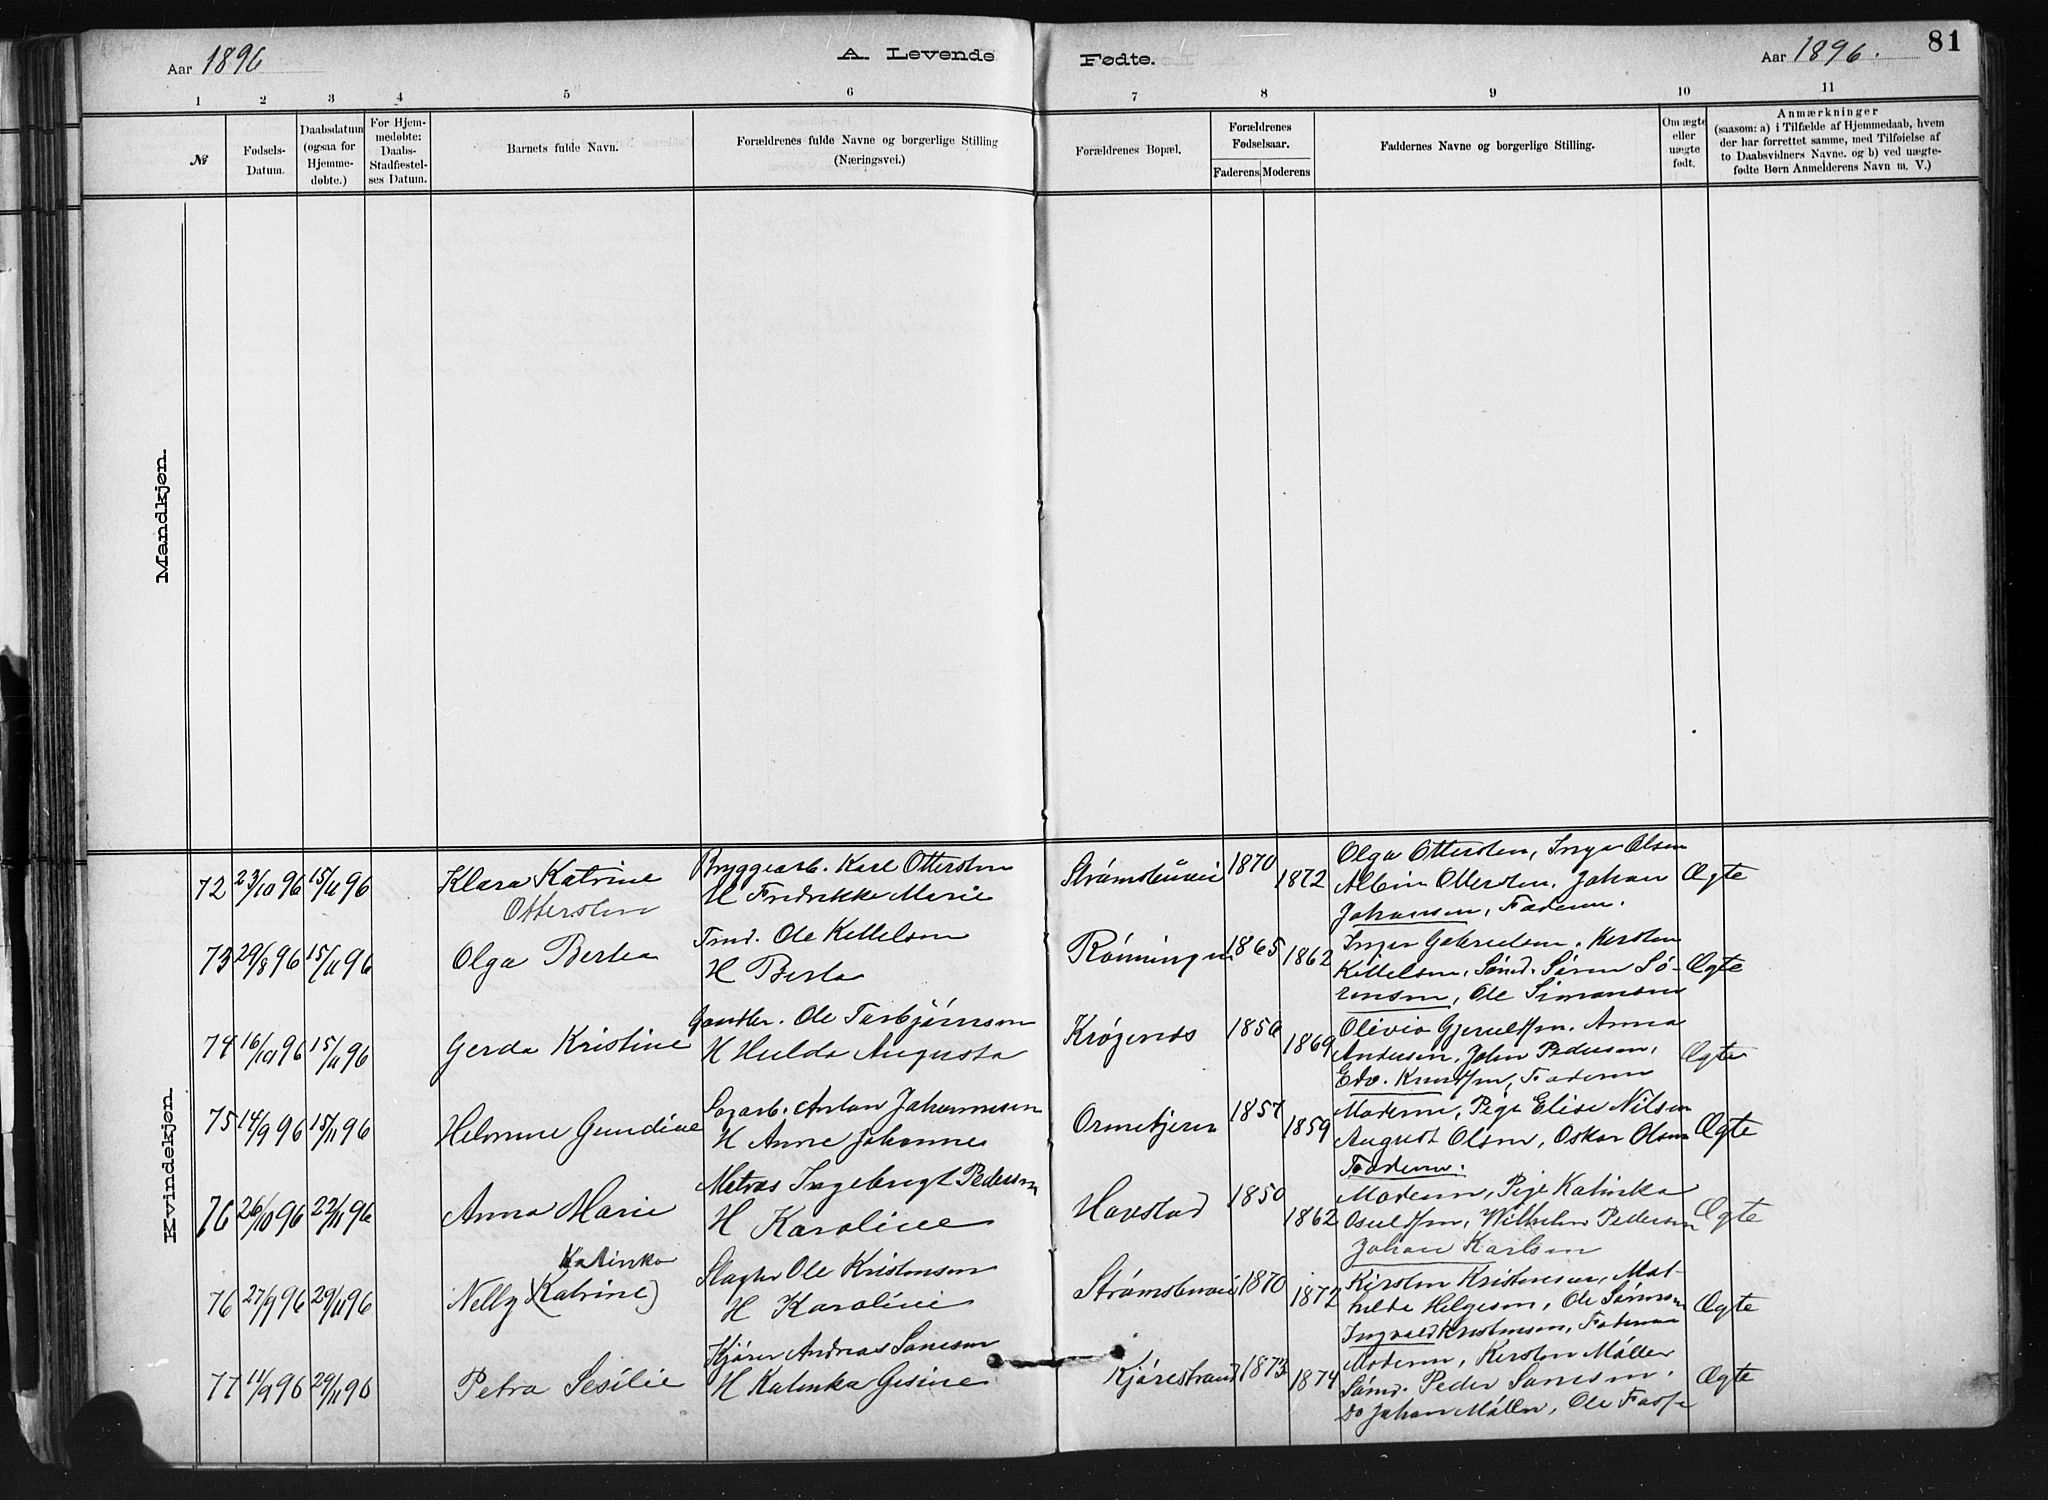 Aar 1896
A. Levende
Fødte.
Aar 1896.
81
1 2 3 4 5 6 7 8 9 10 11
№
Fødsels-
Datum.
Daabsdatum
(ogsaa for
Hjemme-
døbte.)
For Hjem-
medøbte:
Daabs-
Stadfæstel-
ses Datum.
Barnets fulde Navn.
Forældrenes fulde Navne og borgerlige Stilling
(Næringsvei.)
Forældrenes Bopæl.
Forældrenes
Fødselsaar.
Faderens Moderens
Faddernes Navne og borgerlige Stilling.
Om ægte
eller
uægte
født.
Anmærkninger
(saasom: a) i Tilfælde af Hjemmedaab, hvem
der har forrettet samme, med Tilføielse af
to Daabsvidners Navne. og b) ved uægte-
fødte Børn Anmelderens Navn m. V.)
Mandkjøn.
Kvindekjøn.
72 23/10 96 15/11 96
Klara Katrine
Ottersen
Bryggearb. Karl Ottersen
H Fredrikke Marie
Strømsbuvei 1870 1872
Olga Ottersen, Inga Olsen
Albin Ottersen, Johan
Johansen, Faderen.
Ægte
73 29/8 96 15/11 96
Olga Bertea
Tmd. Ole Kittelsen
H Berta
Rønningen 1865 1862
Inger Gabrielsen. Kersten
Kittelsen, Sømd. Søren Sø-
rensen, Ole Simonsen
Ægte
74 16/10 96 15/11 96
Gerda Kristine
Ole Torbjørnsen
H Hulda Augusta
Krøgenes 1856 1869
Olivia Gjeruldsen. Anna
Andersen, John Pedersen,
Edv. Knudsen, Faderen
Ægte
75 14/9 96 15/11 96
Helmine Gundine
Sagarb. Anton Johannesen
H Anne Johanne
Ormekjern 1857 1859
Moderen, Pige Elise Nilsen
August Olsen, Oskar Olsen
Faderen.
Ægte
76 26/10 96 22/11 96
Anna Marie
Matros Ingebregt Pedersen
H Karoline
Havstad 1850 1862
Moderen, Pige Katinka
Osuldsen, Wilhelm Pedersen
Johan Karlsen
Ægte
76 27/9 96 29/11 96
Katinka
Nelly (Katrine)
Slagter Ole Kristensen
H Karoline
Strømsbuvei 1870 1872
Kirsten Kristensen, Mat-
hilde Helgesen, Ole Sørensen
Ingvald Kristensen, Faderen
Ægte
77 11/9 96 29/11 96
Petra Sesilie
Kjører Andreas Sanesen
H Katinka Gisine
Kjørestrand 1873 1874
Moderen, Kersten Møller
Sømd. Peder Sanesen.
Do Johan Møller, Ole
Ægte